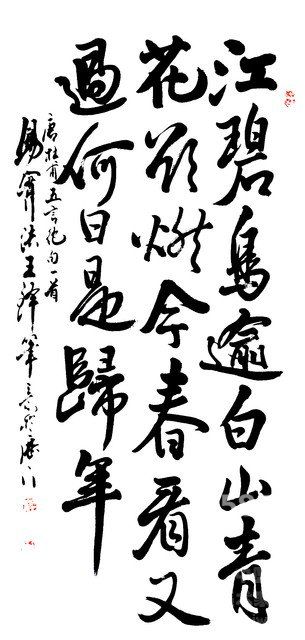 江碧鳥逾白山青
花欲燃今春看又
過何日是歸年
唐杜甫五言绝句一首
法王 筆意於